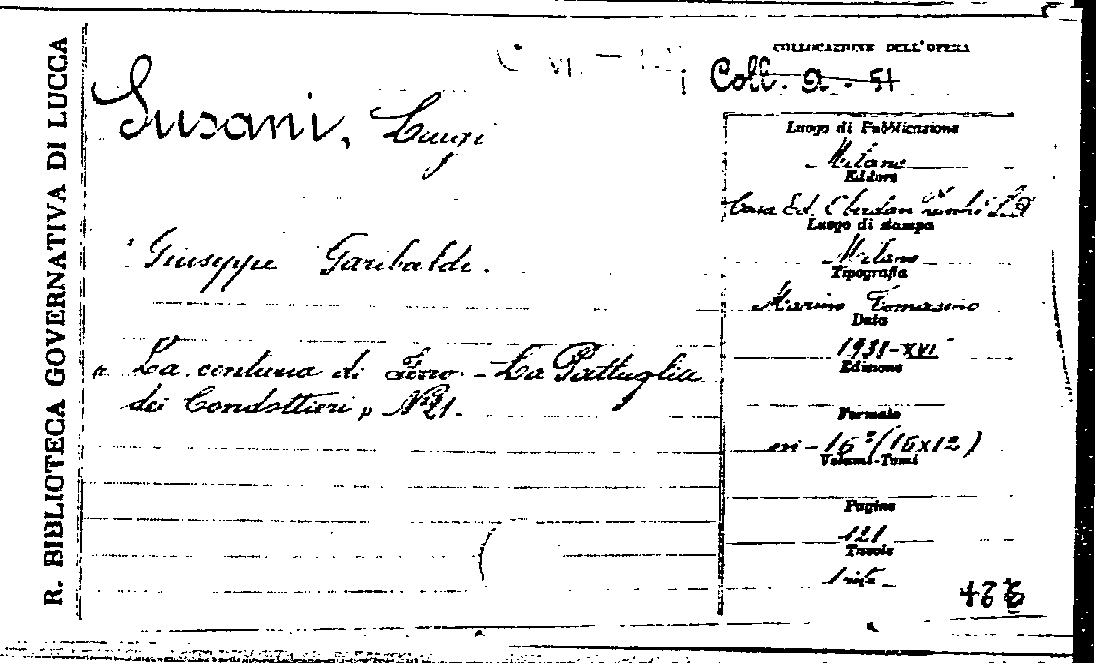 R. BIBLIOTECA GOVERNATIVA DI LUCCA
COLLOCAZIONE DELL'OPERA
Coll. 9. - 51
Susani, Luigi
Luogo di Pubblicazione
Milano
Editore
Casa Ed. Oberdan
Luogo di stampa
Milano
Tipografia
Marino Tomasino
Data
1931-XVI
Edizione
Formato
in-16° (16x12)
Volumi-Tomi
Pagine
121
Tavole
Giuseppe Garibaldi.
"La centuria di Ferro - La Pattuglia
dei Condottieri", N° 21.